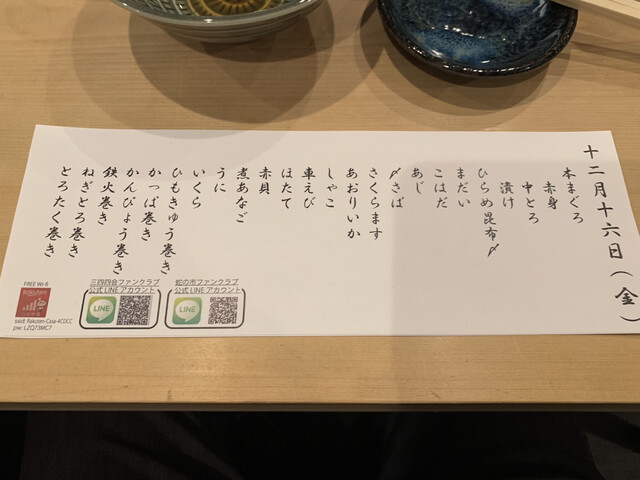 十二月十六日(金)
本まぐろ
赤身
中とろ
漬け
ひらめ昆布〆
まだい
こはだ
あじ
〆さば
さくらます
あおりいか
しゃこ
車えび
ほたて
赤貝
煮あなご
うに
いくら
ひもきゅう巻き
かっぱ巻き
かんぴょう巻き
鉄火巻き
ねぎとろ巻き
とろたく巻き
蛇の市ファンクラブ
公式LINEアカウント
LINE
三四四会ファンクラブ
公式LINEアカウント
LINE
FREE Wi-Fi
Rakuten
ssid: Rakuten-Casa-4CDCC
pw: LZQ73MC7